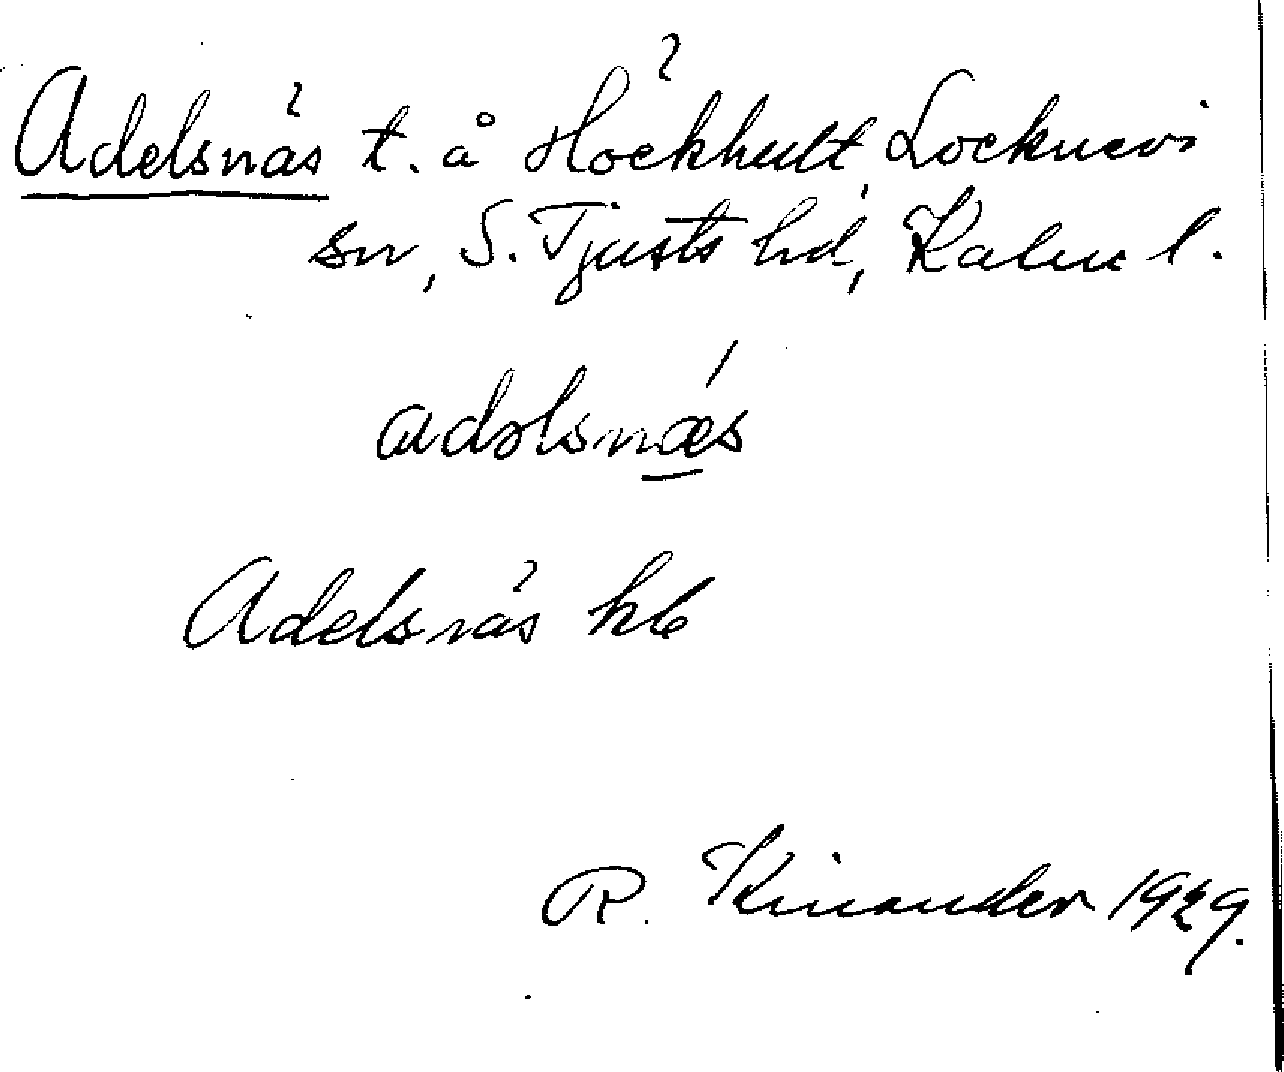 Adelsnäs t. å Höckhult, Locknevi
sn, S. Tjusts hd, Kalm l.
adəlsnæs
Adelsnäs hk
R. Kinander 1929.